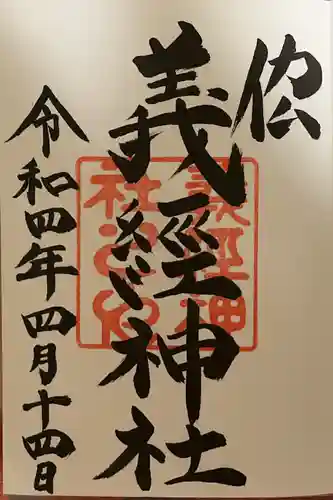 義經神社
令和四年四月十四日
義経神
社之印